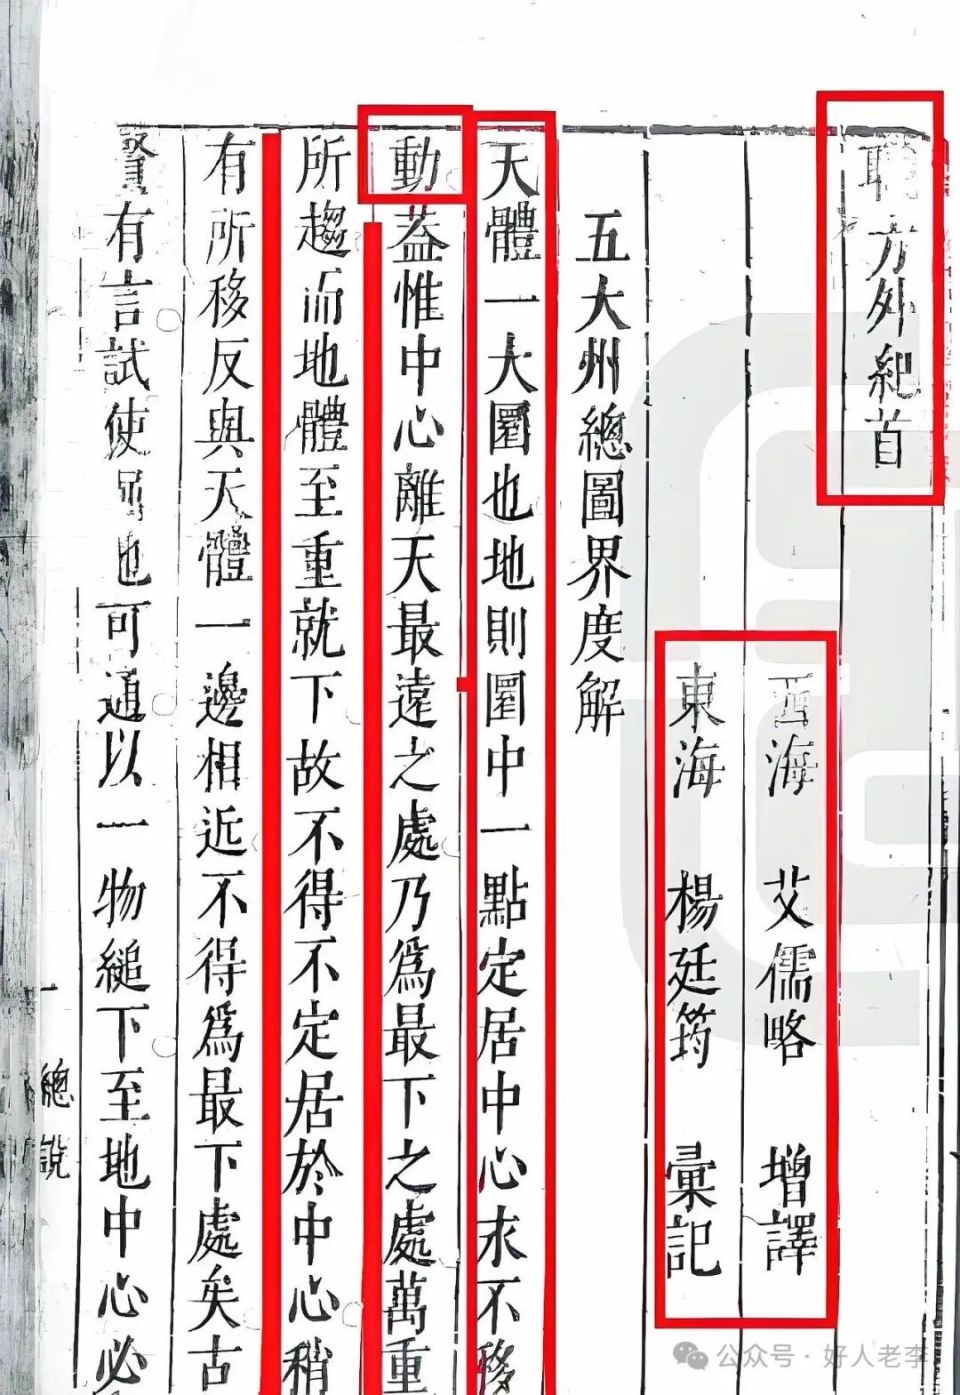 職方外紀首
西海 艾儒略 增譯
東海 楊廷筠 彙記
五大州總圖界度解
天體一大圜也地則圜中一點定居中心永不移
動蓋惟中心離天最遠之處乃為最下之處萬重
所趨而地體至重就下故不得不定居於中心稍
有所移反與天體一邊相近不得為最下處矣古
賢有言試使掘地可通以一物縋下至地中心必
總說
一
公众号·好人老李